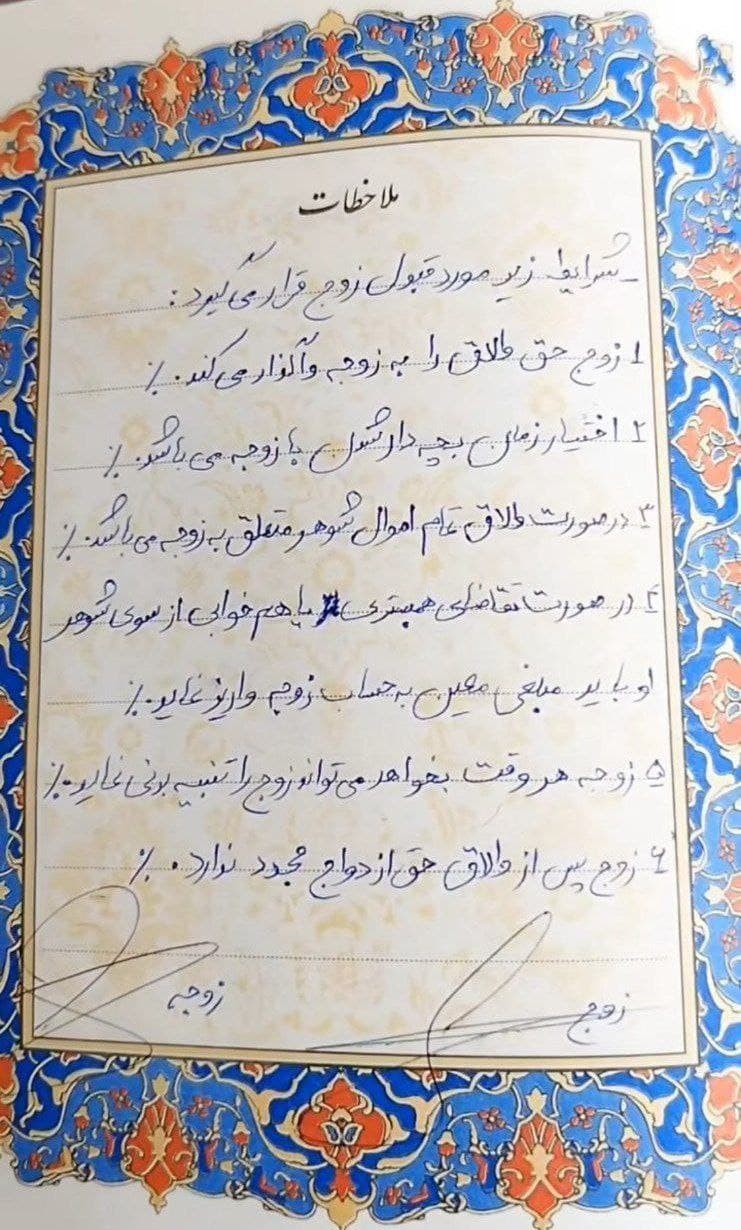 ملاحظات
_ شرایط زیر مورد قبول زوج قرار می گیرد:
۱ زوج حق طلاق را به زوجه واگذار می کند. ٪
۲ اختیار زمان بچه دار شدن با زوجه می باشد. ٪
۳ در صورت طلاق تمام اموال شوهر متعلق به زوجه می باشد. ٪
۴ در صورت تقاضای همبستری یا هم خوابی از سوی شوهر
او باید مبلغی معین به حساب زوجه واریز نماید. ٪
۵ زوجه هر وقت بخواهد می تواند زوج را تنبیه بدنی نماید. ٪
۶ زوج پس از طلاق حق ازدواج مجدد ندارد. ٪
زوج زوجه